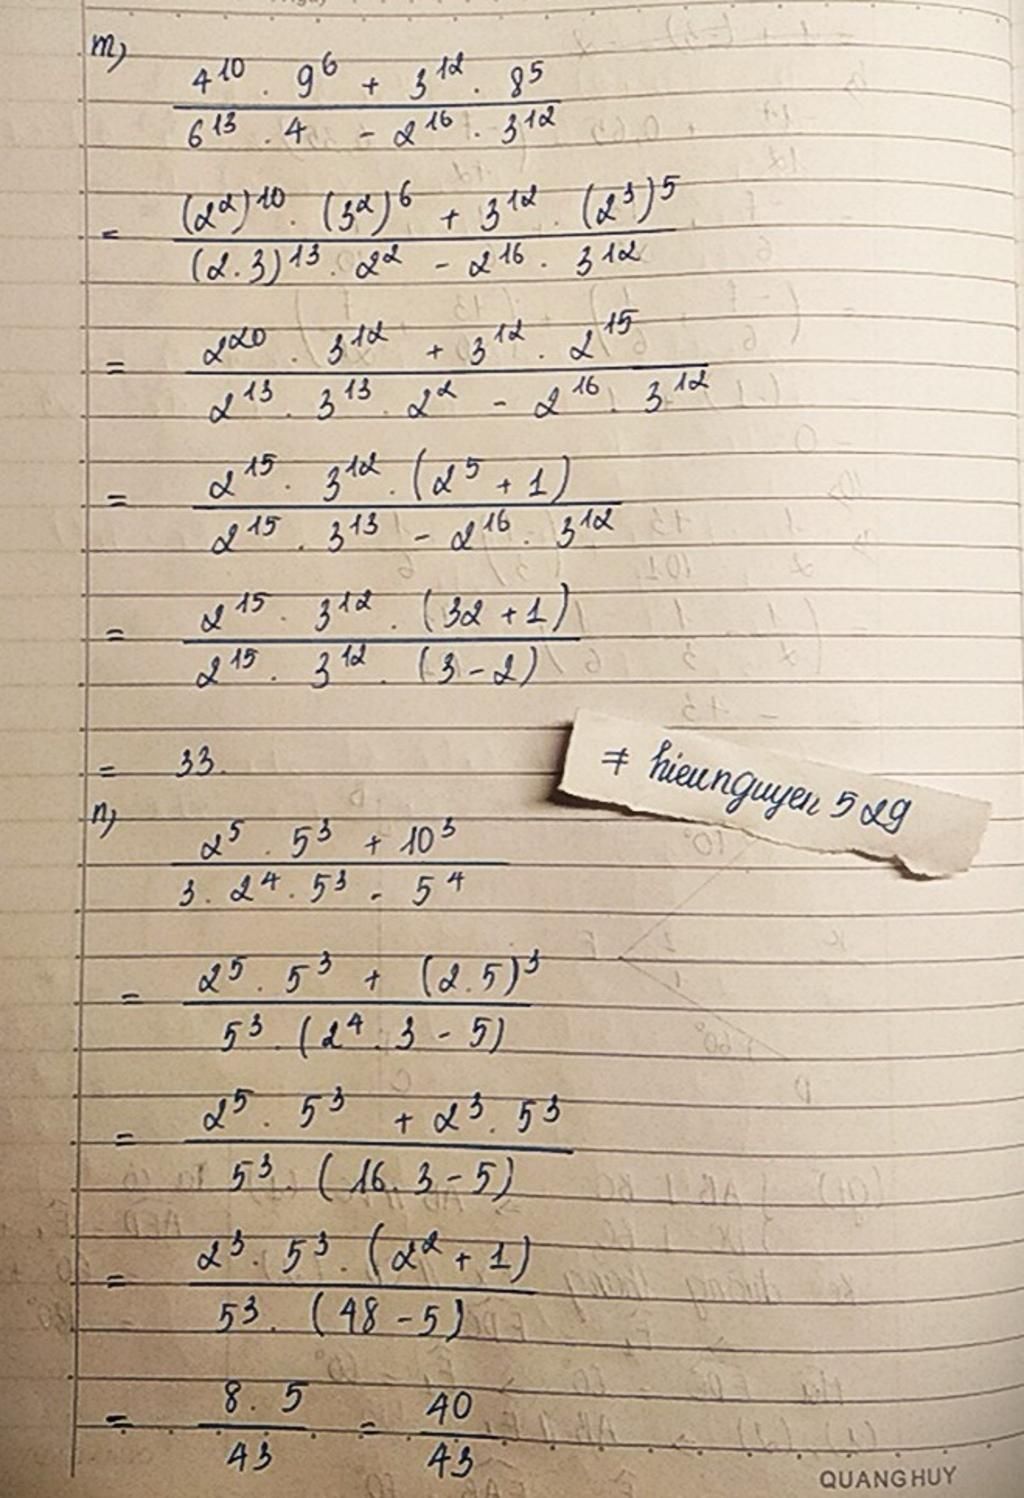 m)
4^10 . 9^6 + 3^12 . 8^5
6^13 . 4 - 2^16 . 3^12
= (2^2)^10 . (3^2)^6 + 3^12 . (2^3)^5
(2.3)^13 . 2^2 - 2^16 . 3^12
= 2^20 . 3^12 + 3^12 . 2^15
2^13 . 3^13 . 2^2 - 2^16 . 3^12
= 2^15 . 3^12 . (2^5 + 1)
2^15 . 3^13 - 2^16 . 3^12
= 2^15 . 3^12 . (32 + 1)
2^15 . 3^12 . (3 - 2)
= 33.
# hieunguyen529
n)
2^5 . 5^3 + 10^3
3 . 2^4 . 5^3 - 5^4
= 2^5 . 5^3 + (2.5)^3
5^3 . (2^4 . 3 - 5)
= 2^5 . 5^3 + 2^3 . 5^3
5^3 (16 . 3 - 5)
= 2^3 . 5^3 . (2^2 + 1)
5^3 . (48 - 5)
= 8 . 5 = 40
43 43
QUANG HUY